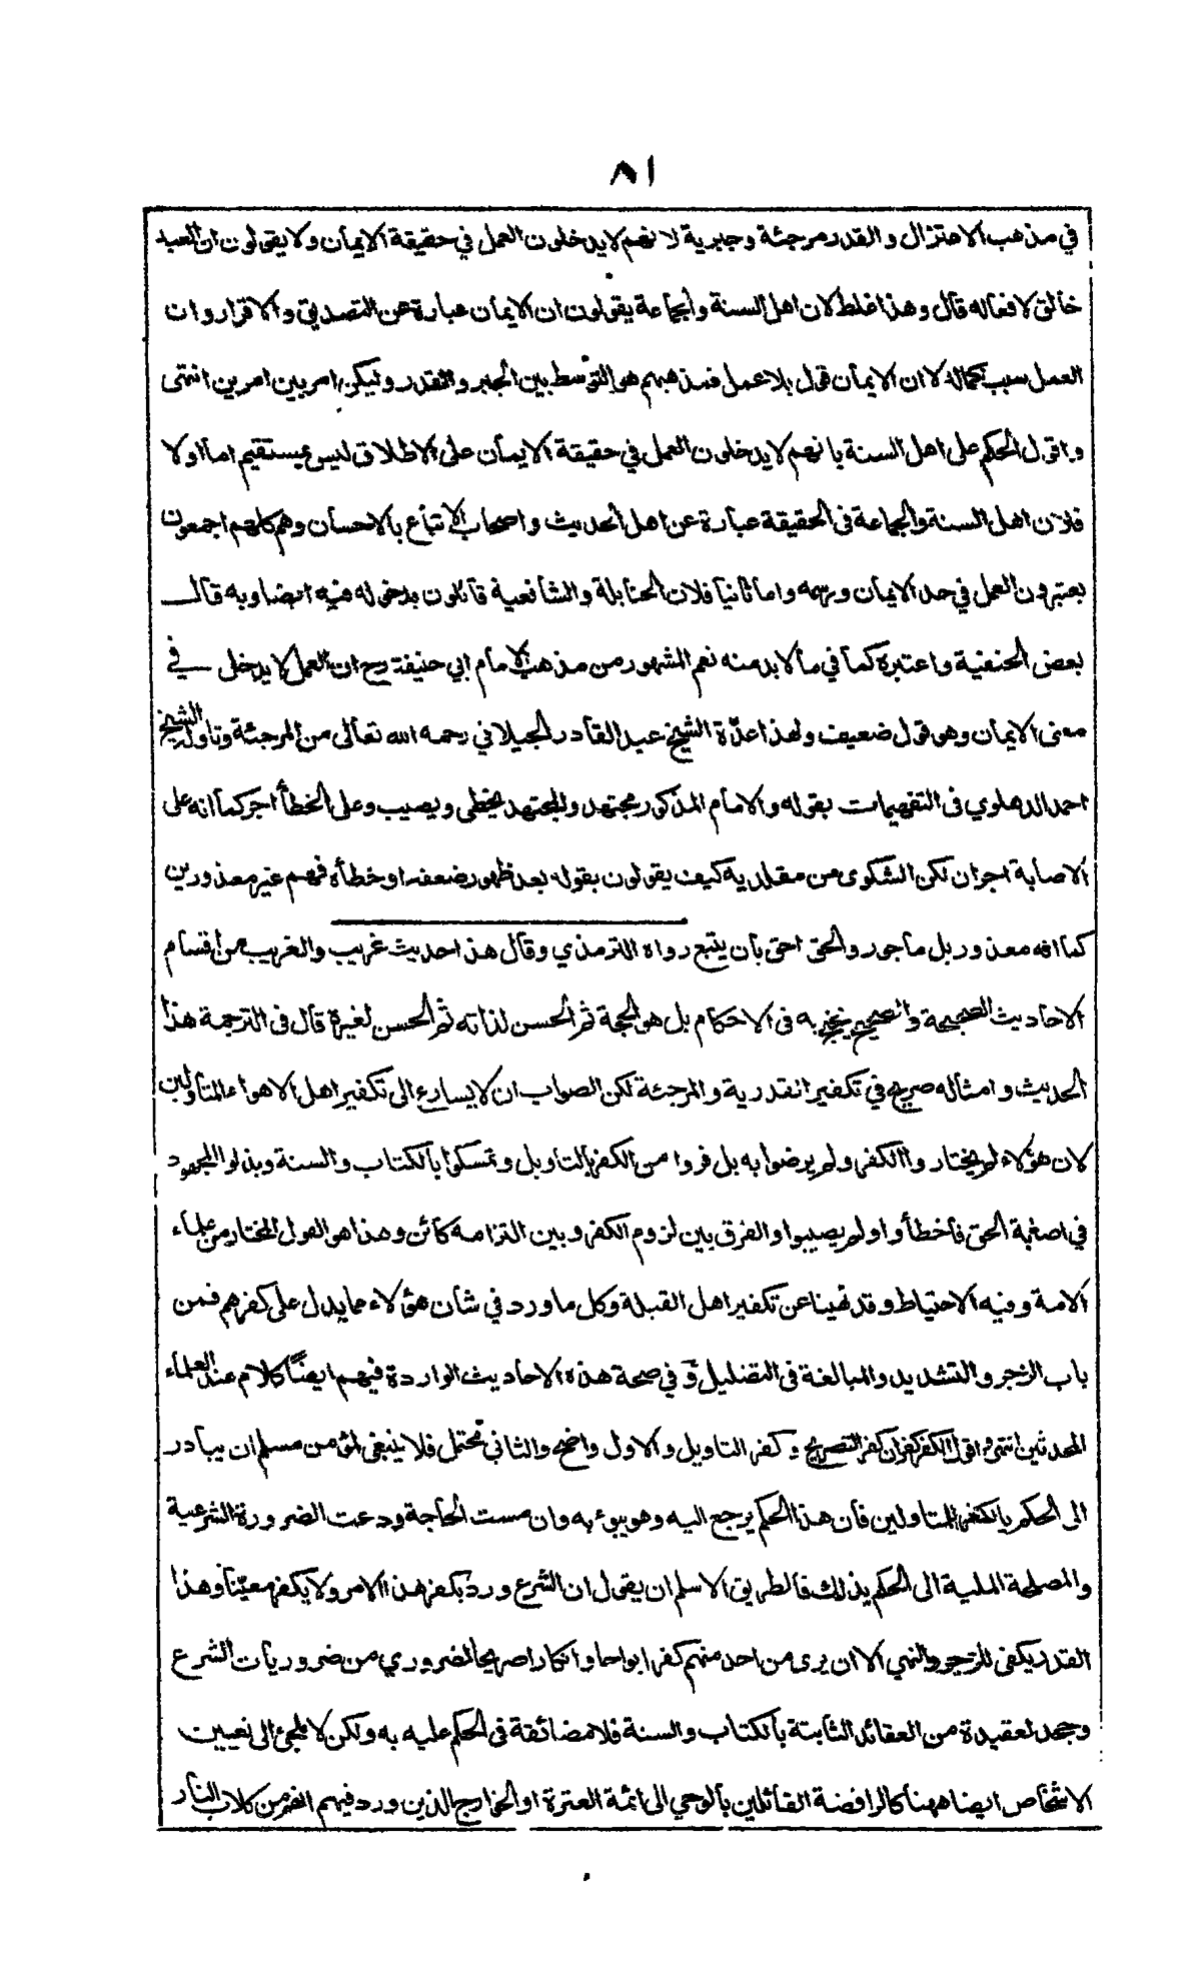 ٨١
في مذهب الاعتزال والقدر مرجئة وجبرية لانهم لا يدخلون العمل في حقيقة الايمان ولا يقولون ان العبد
خالق لافعاله قال وهذا غلط لان اهل السنة والجماعة يقولون ان الايمان عبارة عن التصديق والاقرار وان
العمل سبب كماله لا ان الايمان قول بلا عمل فمذهبهم هو التوسط بين الجبر والقدر وليكن امر بين امرين انتهى
واقول الحكم على اهل السنة بانهم لا يدخلون العمل في حقيقة الايمان على الاطلاق ليس بمستقيم اما اولا
فلان اهل السنة والجماعة فى الحقيقة عبارة عن اهل الحديث واصحاب الاتباع بالاحسان وهم كلهم اجمعون
يعتبرون العمل في حد الايمان ورسمه واما ثانيا فلان الحنابلة والشافعية قائلون بدخوله فيه ايضا وبه قال
بعض الحنفية واعتبره كما في ما لا بد منه نعم المشهور من مذهب الامام ابي حنيفة رح ان العمل لا يدخل في
معنى الايمان وهو قول ضعيف ولهذا عدّة الشيخ عبد القادر الجيلاني رحمه الله تعالى من المرجئة وتاوله الشيخ
احمد الدهلوي فى التفهيمات بقوله والامام المذكور مجتهد والمجتهد يخطى ويصيب وعلى الخطأ اجر كما انه على
الاصابة اجران لكن الشكوى من مقلديه كيف يقولون بقوله بعد ظهور ضعفه او خطأه فهم غير معذورين
كما انه معذور بل ماجور والحق احق بان يتبع رواه الترمذي وقال هذا حديث غريب والغريب من اقسام
الاحاديث الصحيحة والصحيح يحتج به فى الاحكام بل هو الحجة ثم الحسن لذاته ثم الحسن لغيره قال فى الترجمة هذا
الحديث وامثاله صريح في تكفير القدرية والمرجئة لكن الصواب ان لا يسارع الى تكفير اهل الاهواء المتأولين
لان هؤلاء لم يختاروا الكفر ولم يرضوا به بل فروا من الكفر بالتأويل وتمسكوا بالكتاب والسنة وبذلوا المجهود
في اصابة الحق فاخطأوا ولم يصيبوا والفرق بين لزوم الكفر وبين التزامه كائن وهذا هو القول المختار من علماء
الامة وفيه الاحتياط وقد نهينا عن تكفير اهل القبلة وكل ما ورد في شأن هؤلاء مما يدل على كفرهم فمن
باب الزجر والتشديد والمبالغة فى التضليل و في صحة هذه الاحاديث الواردة فيهم ايضًا كلام عند العلماء
المحدثين انتهى واقول الكفر كفران كفر التصريح وكفر التاويل والاول واضح والثاني محتمل فلا ينبغى لمؤمن مسلم ان يبادر
الى الحكم بالكفر للمتاولين فأن هذا الحكم يرجع اليه وهو يبوء به وان مست الحاجة ودعت الضرورة الشرعية
والمصلحة الملية الى الحكم بذلك فالطريق الاسلم ان يقول ان الشرع ورد بكفر هذا الامر ولا يكفر معيّنا وهذا
القدر يكفى للزجر والنهي الا ان يرى من احد منهم كفرا بواحا وانكارا صريحا لضروري من ضروريات الشرع
وجحد لعقيدة من العقائد الثابتة بالكتاب والسنة فلا مضائقة فى الحكم عليه به ولكن لا ملجئ الى تعيين
الاشخاص ايضا ههنا كالرافضة القائلين بالوحي الى ائمة العترة او الخوارج الذين ورد فيهم انهم من كلاب النار